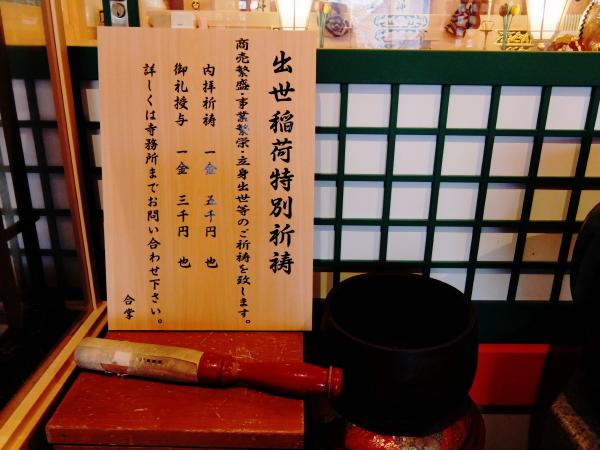 出世稲荷特別祈祷
商売繁盛・事業繁栄・立身出世等のご祈祷を致します。
内拝祈祷 一金 五千円 也
御礼授与 一金 三千円 也
詳しくは寺務所までお問い合わせ下さい。
合掌